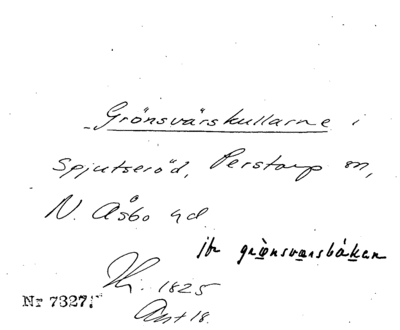 Grönsvärskullarne i
Spjutseröd, Perstorp sn,
N. Åsbo hd
jfr grönsvarsbàkan
Hi. 1825
Ant 18.
Nr 7327.